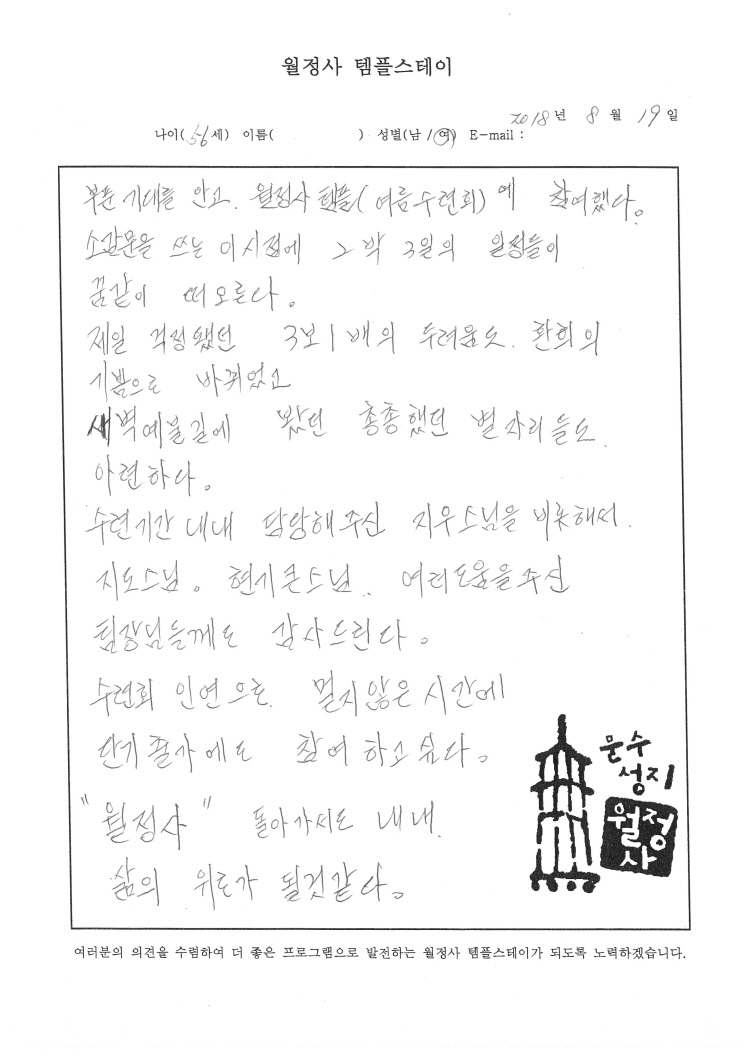 월정사 템플스테이
2018년 8월 19일
나이(56세) 이름( ) 성별(남/여) E-mail :
부푼 기대를 안고. 월정사 템플(여름수련회)에 참여했다.
소감문을 쓰는 이시점에 2박 3일의 일정들이
꿈같이 떠오른다.
제일 걱정됐던 3보1배의 두려움도. 환희의
기쁨으로 바뀌었고
새벽예불길에 봤던 총총했던 별자리들도.
아련하다.
수련기간 내내 담당해주신 지우스님을 비롯해서.
지도스님. 현기큰스님. 여러도움을주신
팀장님들께도 감사드린다.
수련회 인연으로. 멀지않은 시간에
단기출가에도 참여하고싶다.
"월정사" 돌아가서도 내내.
삶의 위로가 될것같다.
문수
성지
월정
사
여러분의 의견을 수렴하여 더 좋은 프로그램으로 발전하는 월정사 템플스테이가 되도록 노력하겠습니다.